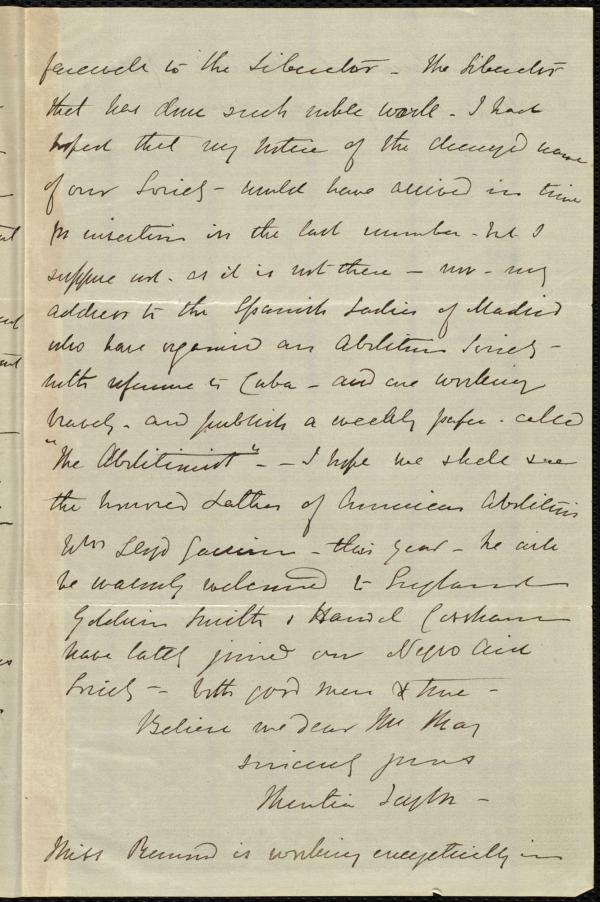 farewell to the Liberator - the Liberator
that has done such noble work - I had
hoped that my notice of the changed name
of our Society - would have arrived in time
for insertion in the last number - but I
suppose not - as it is not there - nor - my
address to the Spanish Ladies of Madrid
who have organised an Abolition Society -
with reference to Cuba - and are working
bravely - and publish a weekly paper - called
"The Abolitionist" - - I hope we shall see
the honored Father of American Abolition
Wm Lloyd Garrison - this year - he will
be warmly welcomed to England
Goldwin Smith & Handel Cossham
have lately joined our Negro Aid
Society - - both good men & true -
Believe me dear Mr May
sincerely yours
Mentia Taylor -
Miss Remond is working energetically in